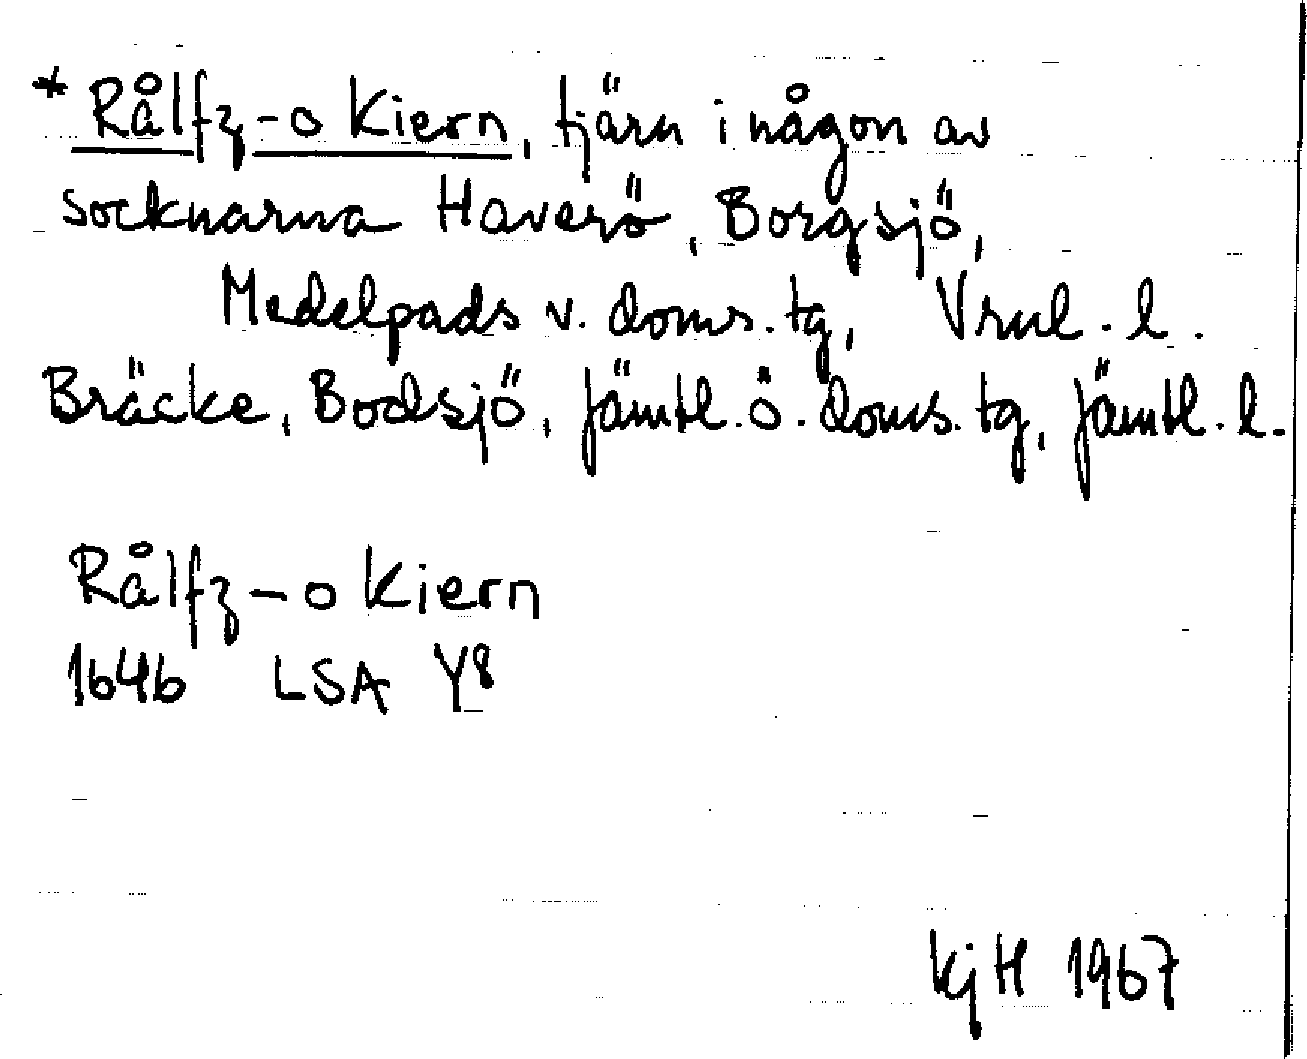 * Rålfz-o Kiern, tjärn i någon av
socknarna Haverö, Borgsjö,
Medelpads v. doms.tg, Vrnl.l.
Bräcke, Bodsjö, Jämtl.ö.doms.tg, Jämtl.l.
Rålfz-o Kiern
1646 LSA Y8
KjH 1967